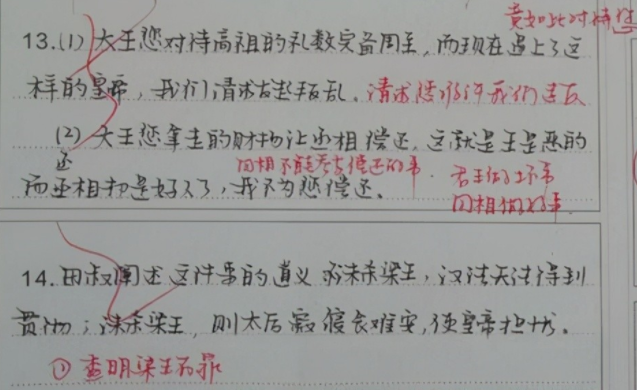 竟如此对待您
13.(1)大王您对待高祖的礼数完备周全，而现在遇上了这
样的皇帝，我们请求去造反叛乱。请求您允许我们造反
(2)大王您拿走的财物让丞相偿还，这就是王是恶的
还
而丞相却是好人了，我不为您偿还。
田相不能参与偿还的事
君王做坏事
田相做好事
14.田叔阐述这件事的道义 求未杀梁王，汉法无法得到
贯彻；诛杀梁王，则太后寝食难安，使皇帝担忧。
① 查明梁王的罪